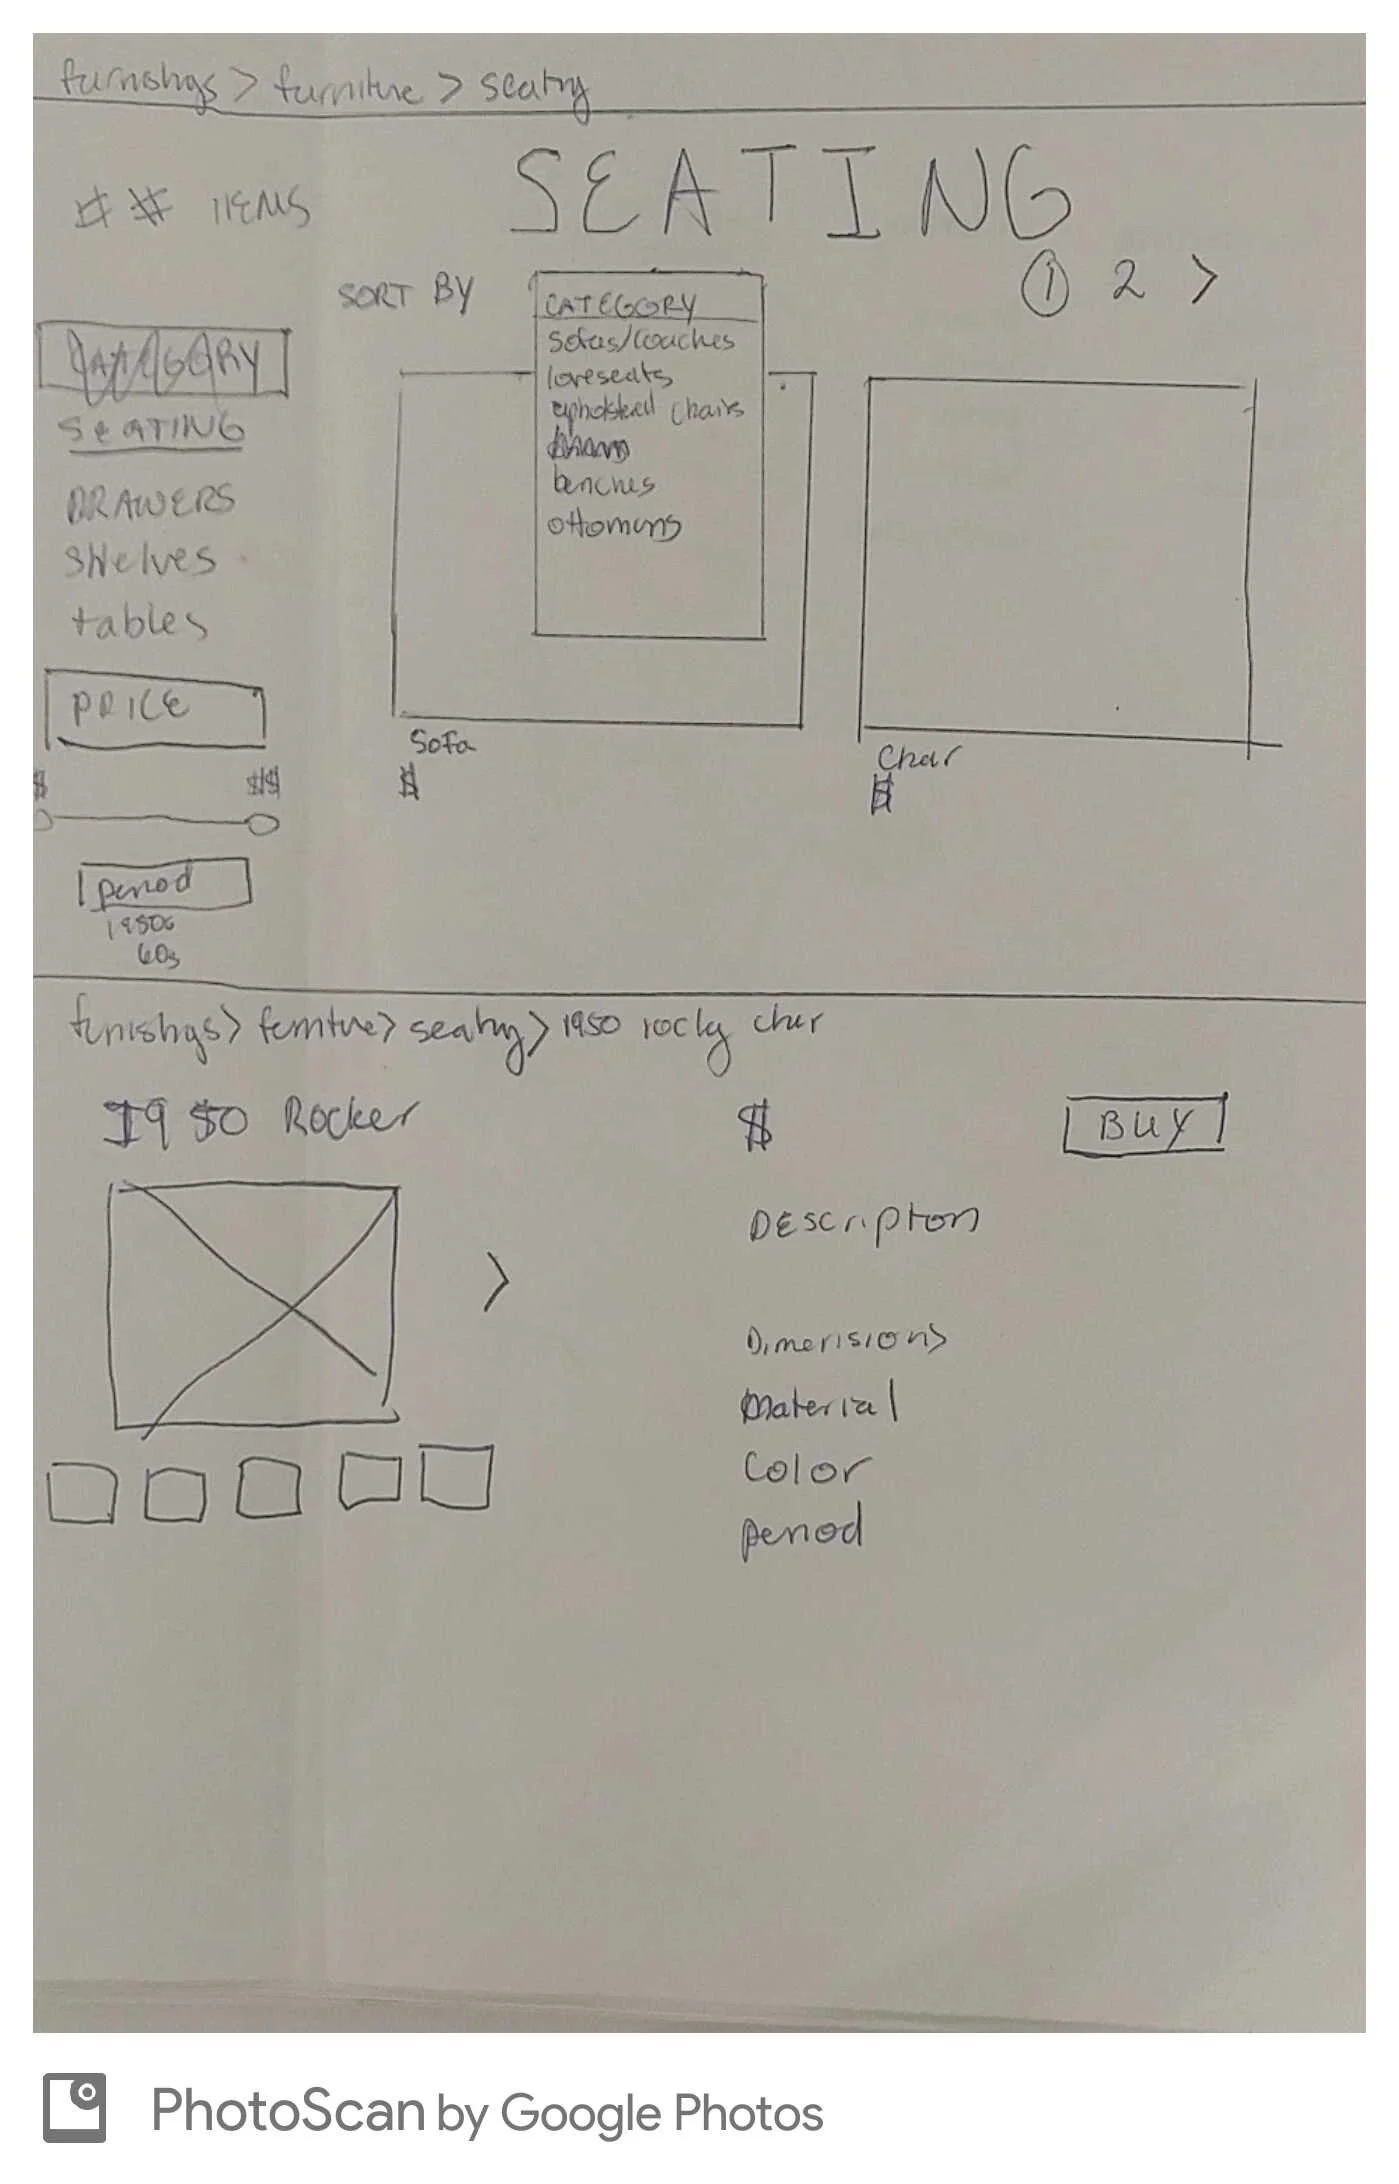 furnishgs > furniture > seatng
## ITEMS
SEATING
SORT BY
1 2 >
CATEGORY
Sofas/Couches
loveseats
upholstered chairs
benches
ottomans
CATEGORY
SEATING
DRAWERS
SHelves
tables
PRICE
$ $$
Sofa
$
Chair
$
period
1950s
60s
furnishgs > furniture > seatng > 1950 rockg chair
1950 Rocker
$
BUY
>
DEscription
Dimensions
Material
Color
period
PhotoScan by Google Photos